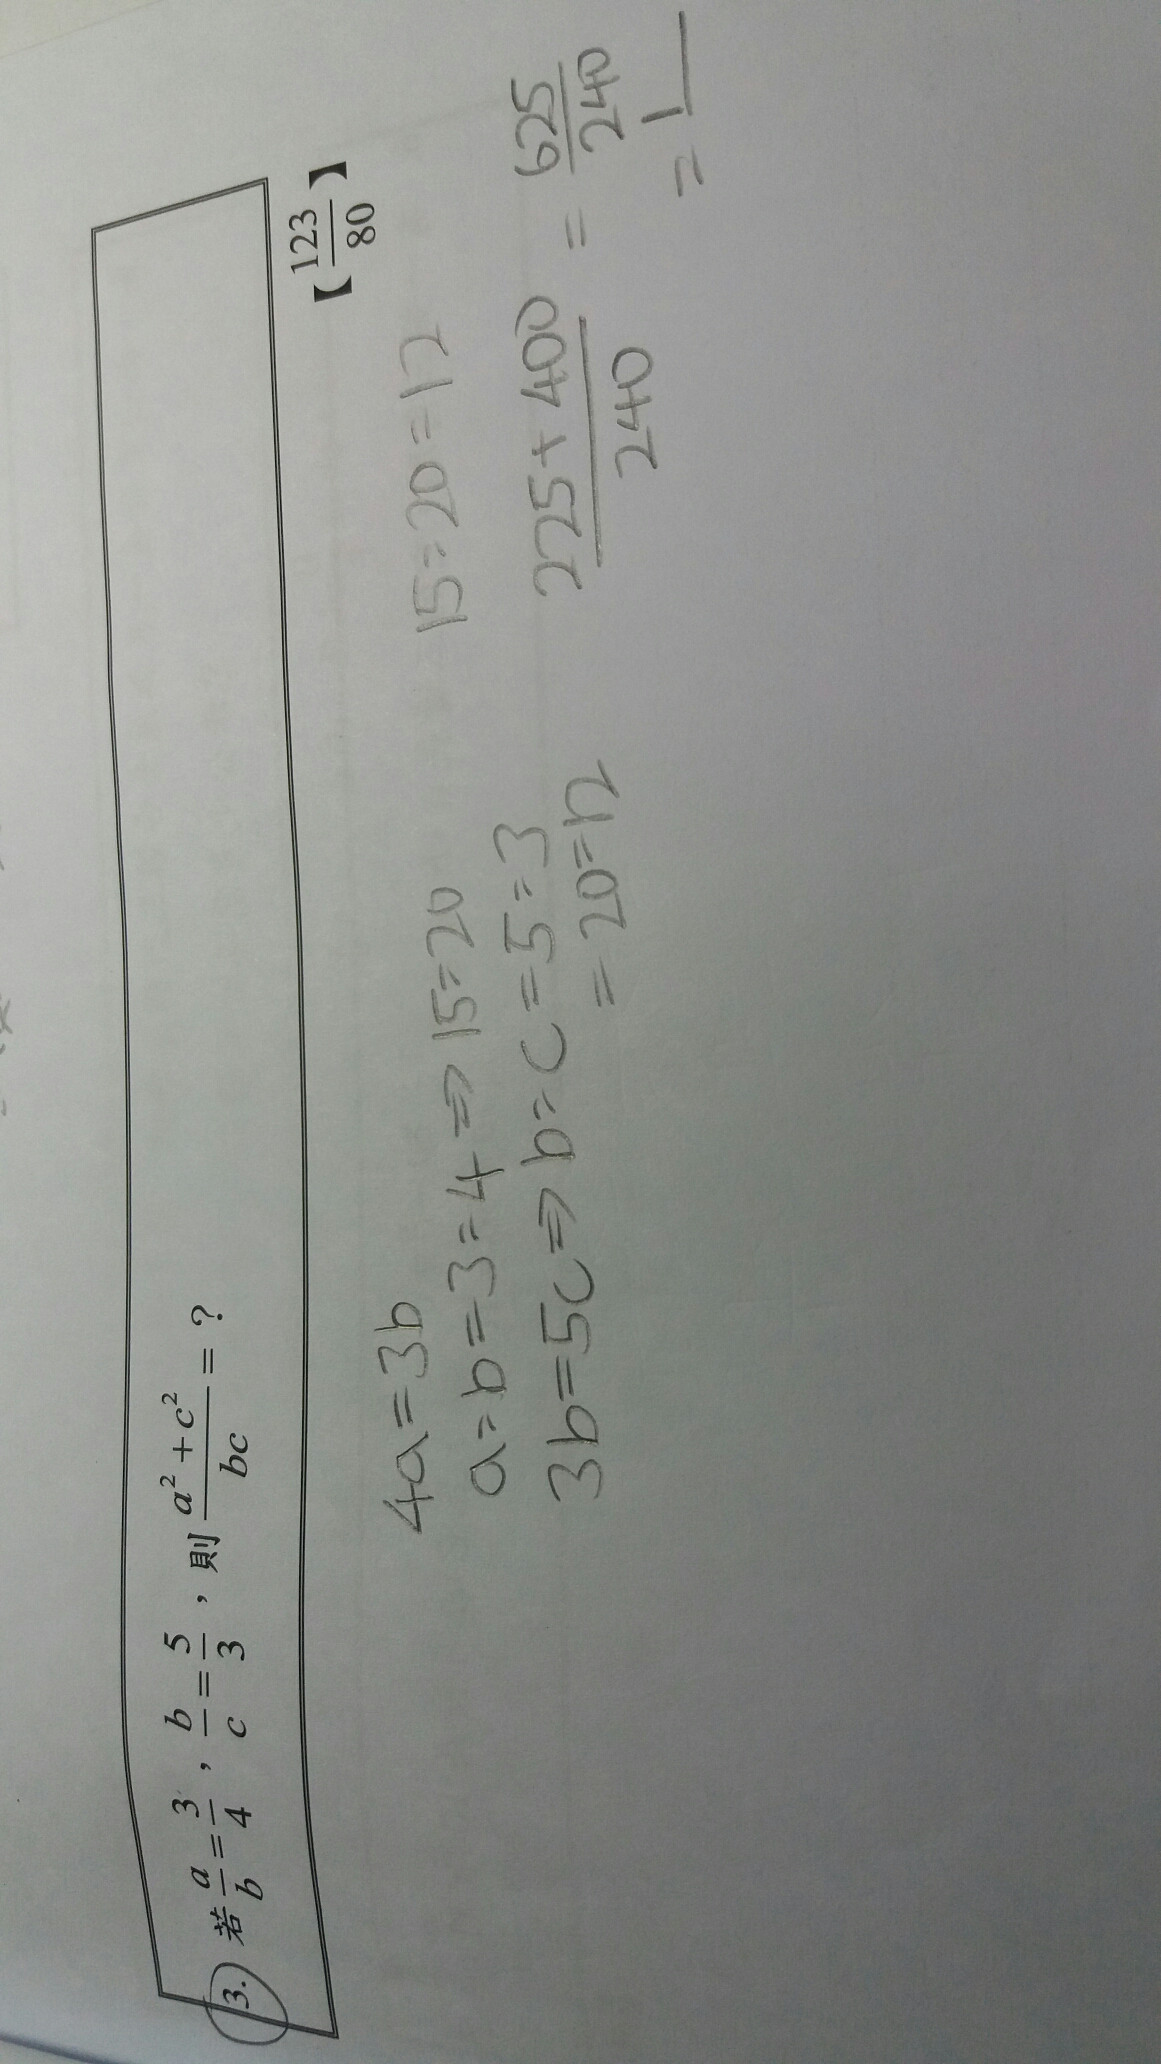 3. 若 a/b = 3/4 , b/c = 5/3 , 則 (a²+c²)/bc = ?
【123/80】
4a=3b
a:b=3:4⇒15:20
15:20:12
3b=5c⇒b:c=5:3
=20:12
(225+400)/240 = 625/240
=1